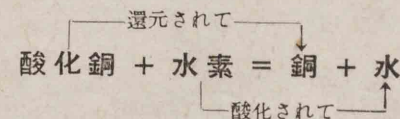 還元されて
酸化銅 + 水素 = 銅 + 水
酸化されて